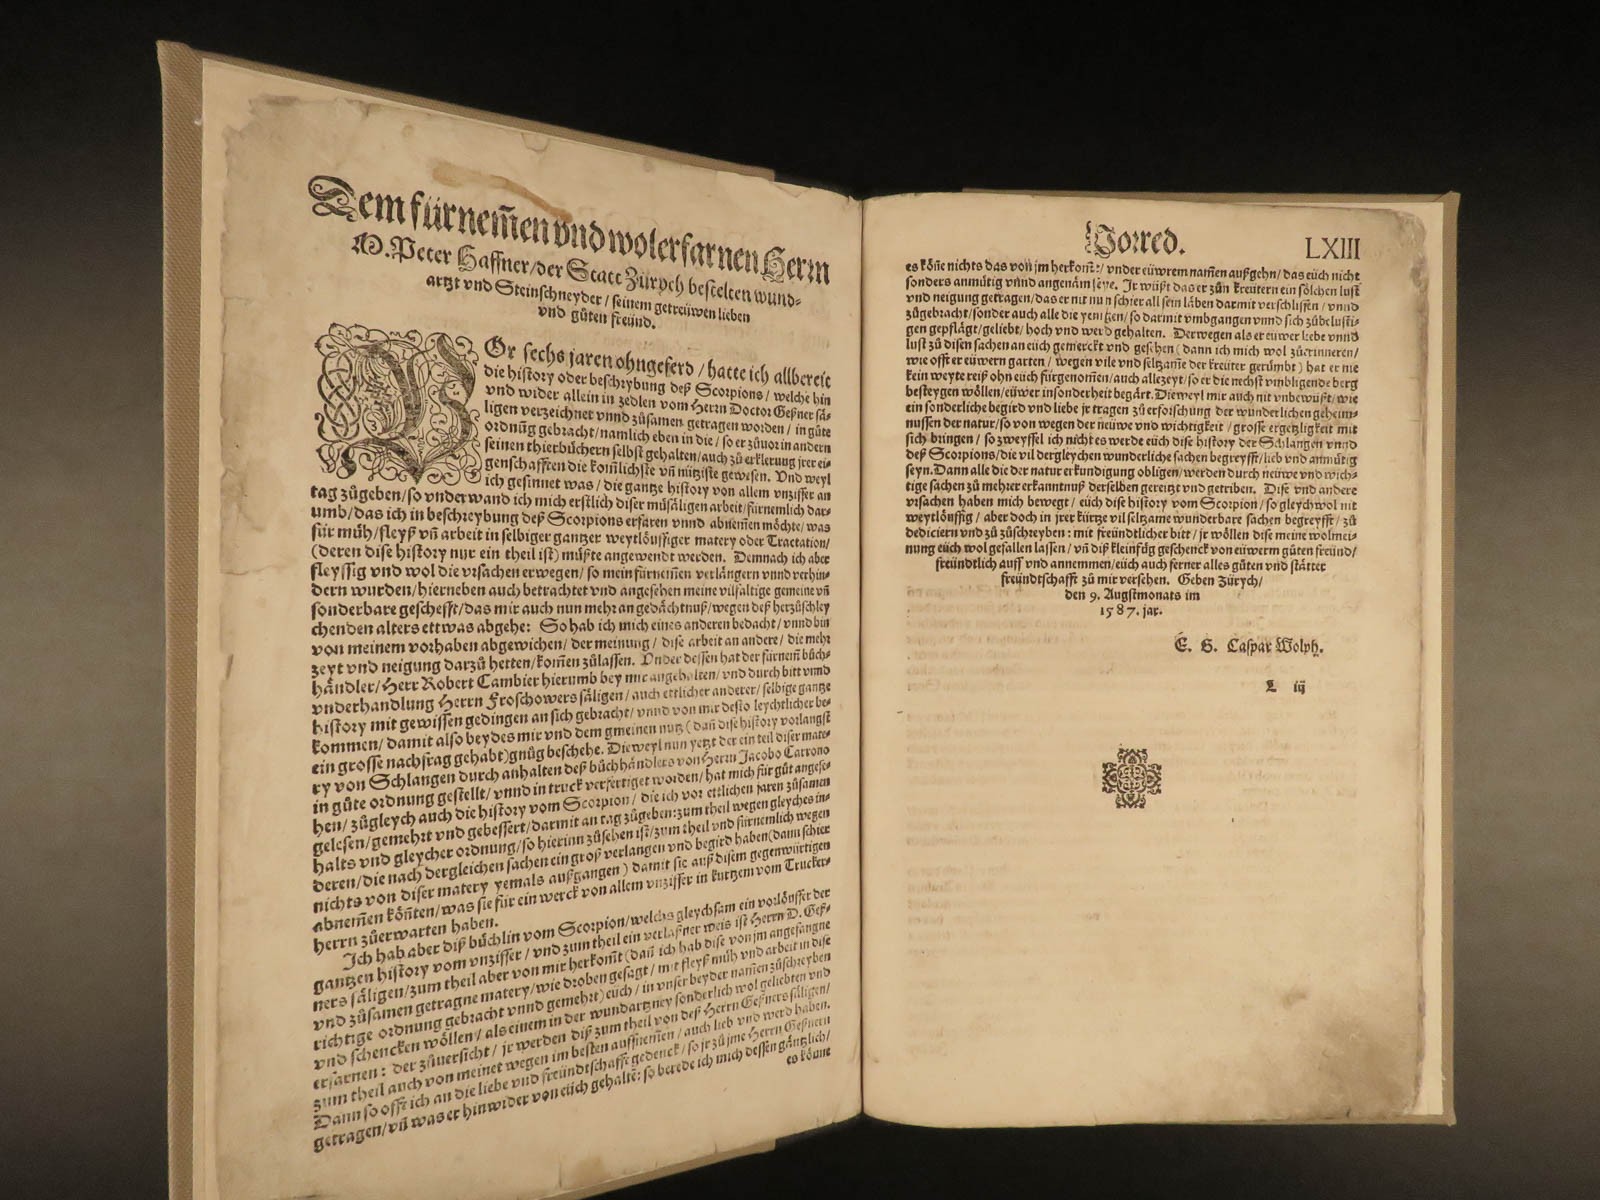 Dem fürnem̄en vnd wolerfarnen Herrn
M. Peter Haffner/ der Statt Zürych bestelten wund-
artzt vnd Steinschneyder/ seinem getreüwen lieben
vnd gůten freünd.
VOr sechs jaren ohngeferd/ hatte ich allbereit
die history oder beschrybung deß Scorpions/ welche hin
vnd wider allein in zedlen vom Herrn Doctor Geßner sä-
ligen verzeichnet vnnd zůsamen getragen worden/ in gůte
ordnūg gebracht/ namlich eben in die/ so er zůuor in andern
seinen thierbüchern selbst gehalten/ auch zů erklerung jrer ei-
genschafften die kom̄lichste vn̄ nütziste gewesen. Vnd weyl
ich gesinnet was/ die gantze history von allem vnziffer an
tag zůgeben/ so vnderwand ich mich erstlich diser müsäligen arbeit/ fürnemlich dar-
umb/ das ich in beschreybung deß Scorpions erfaren vnnd abnem̄en möchte/ was
für müh/ fleyß vn̄ arbeit in selbiger gantzer weytlöuffiger matery oder Tractation/
(deren dise history nur ein theil ist) müßte angewendt werden. Demnach ich aber
fleyssig vnd wol die vrsachen erwegen/ so mein fürnem̄en verlängern vnnd verhin-
dern wurden/ hierneben auch betrachtet vnd angesehen meine vilfaltige gemeine vn̄
sonderbare geschefft/ das mir auch nun mehr an gedächtnuß/ wegen deß herzůschley
chenden alters ettwas abgehe: So hab ich mich eines anderen bedacht/ vnnd bin
von meinem vorhaben abgewichen/ der meinung/ dise arbeit an andere/ die mehr
zeyt vnd neigung darzů hetten/ kom̄en zůlassen. Vnder dessen hat der fürnem̄ bůch-
händler/ Herr Robert Cambier hierumb bey mir angehalten/ vnd durch bitt vnnd
vnderhandlung Herrn Froschowers säligen/ auch ettlicher anderer/ selbige gantze
history mit gewissen gedingen an sich gebracht/ vnnd von mir desto leychtlicher be-
kommen/ damit also beydes mir vnd dem gmeinen nutz (dan̄ dise history vorlangst
ein grosse nachfrag gehabt) gnůg beschehe. Die weyl nun yetzt der ein teil diser mate-
ry von Schlangen durch anhalten deß bůchhändlers von Herrn Jacobo Carrono
in gůte ordnung gestellt/ vnnd in truck verfertiget worden/ hat mich für gůt angese-
hen/ zůgleych auch die history vom Scorpion/ die ich vor ettlichen jaren zůsamen
gelesen/ gemehrt vnd gebessert/ darmit an tag zůgeben: zum theil wegen gleyches in-
halts vnd gleycher ordnung/ so hierinn zůsehen ist/ zum theil vnd fürnemlich wegen
deren/ die nach dergleichen sachen ein groß verlangen vnd begird haben (dann schier
nichts von diser matery yemals außgangen) damit sie auß disem gegenwürtigen
abnem̄en kön̄ten/ was sie für ein werck von allem vnziffer in kurtzem vom Trucker-
herrn zůerwarten haben.
Ich hab aber diß bůchlin vom Scorpion/ welchs gleychsam ein vorlöuffer der
gantzen history vom vnziffer/ vnd zum theil ein verlaßner weis ist Herrn D. Geß-
ners säligen/ zum theil aber von mir herkom̄t (dan̄ ich hab dise von jm angefangne
vnd zůsamen getragne matery/ wie droben gesagt/ mit fleyß müh vnd arbeit in dise
richtige ordnung gebracht vnnd gemehrt) eüch/ in vnser beyder namen zůschreyben
vnd schencken wöllen/ als einem in der wundartzney sonderlich wol geliebten vnd
erfarnen: der zůuersicht/ jr werden diß zum theil von deß Herrn Geßners säligen/
zum theil auch von meinet wegen im besten auffnem̄en/ auch lieb vnd werd haben.
Dann so offt ich an die liebe vnd freündtschafft gedenck/ so jr zů jme Herrn Geßnern
getragen/ vn̄ was er hinwider von eüch gehaltē: so berede ich mich dessen gäntzlich/
es könne
Vorred. LXIII
es kön̄e nichts das von jm herkom̄t/ vnder eüwrem nam̄en außgehn/ das eüch nicht
sonders anmůtig vnnd angenäm seye. Ir wüßt das er zůn kreütern ein sölchen lust
vnd neigung getragen/ das er nit nun schier all sein läben darmit verschlissen/ vnnd
zůgebracht/ sonder auch alle die yenigen/ so darmit vmbgangen vnnd sich zůbelusti-
gen gepflägt/ geliebt/ hoch vnd werd gehalten. Derwegen als er eüwer liebe vnnd
lust zů disen sachen an eüch gemerckt vnd gesehen (dann ich mich wol zůerinneren/
wie offt er eüwern garten/ wegen vile vnd seltzame der kreüter gerümbt) hat er nie
kein weyte reiß ohn eüch fürgenom̄en/ auch allezeyt/ so er die nechst vmbligende berg
besteygen wöllen/ eüwer insonderheit begärt. Die weyl mir auch nit vnbewüßt/ wie
ein sonderliche begird vnd liebe jr tragen zů erforschung der wunderlichen geheim-
nussen der natur/ so von wegen der neüwe vnd wichtigkeit/ grosse ergetzligkeit mit
sich bringen/ so zweyffel ich nicht es werde eüch dise history der Schlangen vnnd
deß Scorpions/ die vil dergleychen wunderliche sachen begreyfft/ lieb vnd anmůtig
seyn. Dann alle die der natur erkundigung obligen/ werden durch neüwe vnd wich-
tige sachen zů mehrer erkanntnuß derselben gereitzt vnd getriben. Dise vnd andere
vrsachen haben mich bewegt/ eüch dise history vom Scorpion/ so gleych wol nit
weytlöuffig/ aber doch in jrer kürtze vil seltzame wunderbare sachen begreyfft/ zů
dediciern vnd zů zůschreyben: mit freündtlicher bitt/ jr wöllen dise meine wolmei-
nung eüch wol gefallen lassen/ vn̄ diß kleinfůg geschenck von eüwerm gůten freünd/
freündtlich auff vnd annemmen/ eüch auch ferner alles gůten vnd stätter
freündtschafft zů mir versehen. Geben Zürych/
den 9. Augstmonats im
1587. jar.
E. G. Caspar Wolph.
L iij